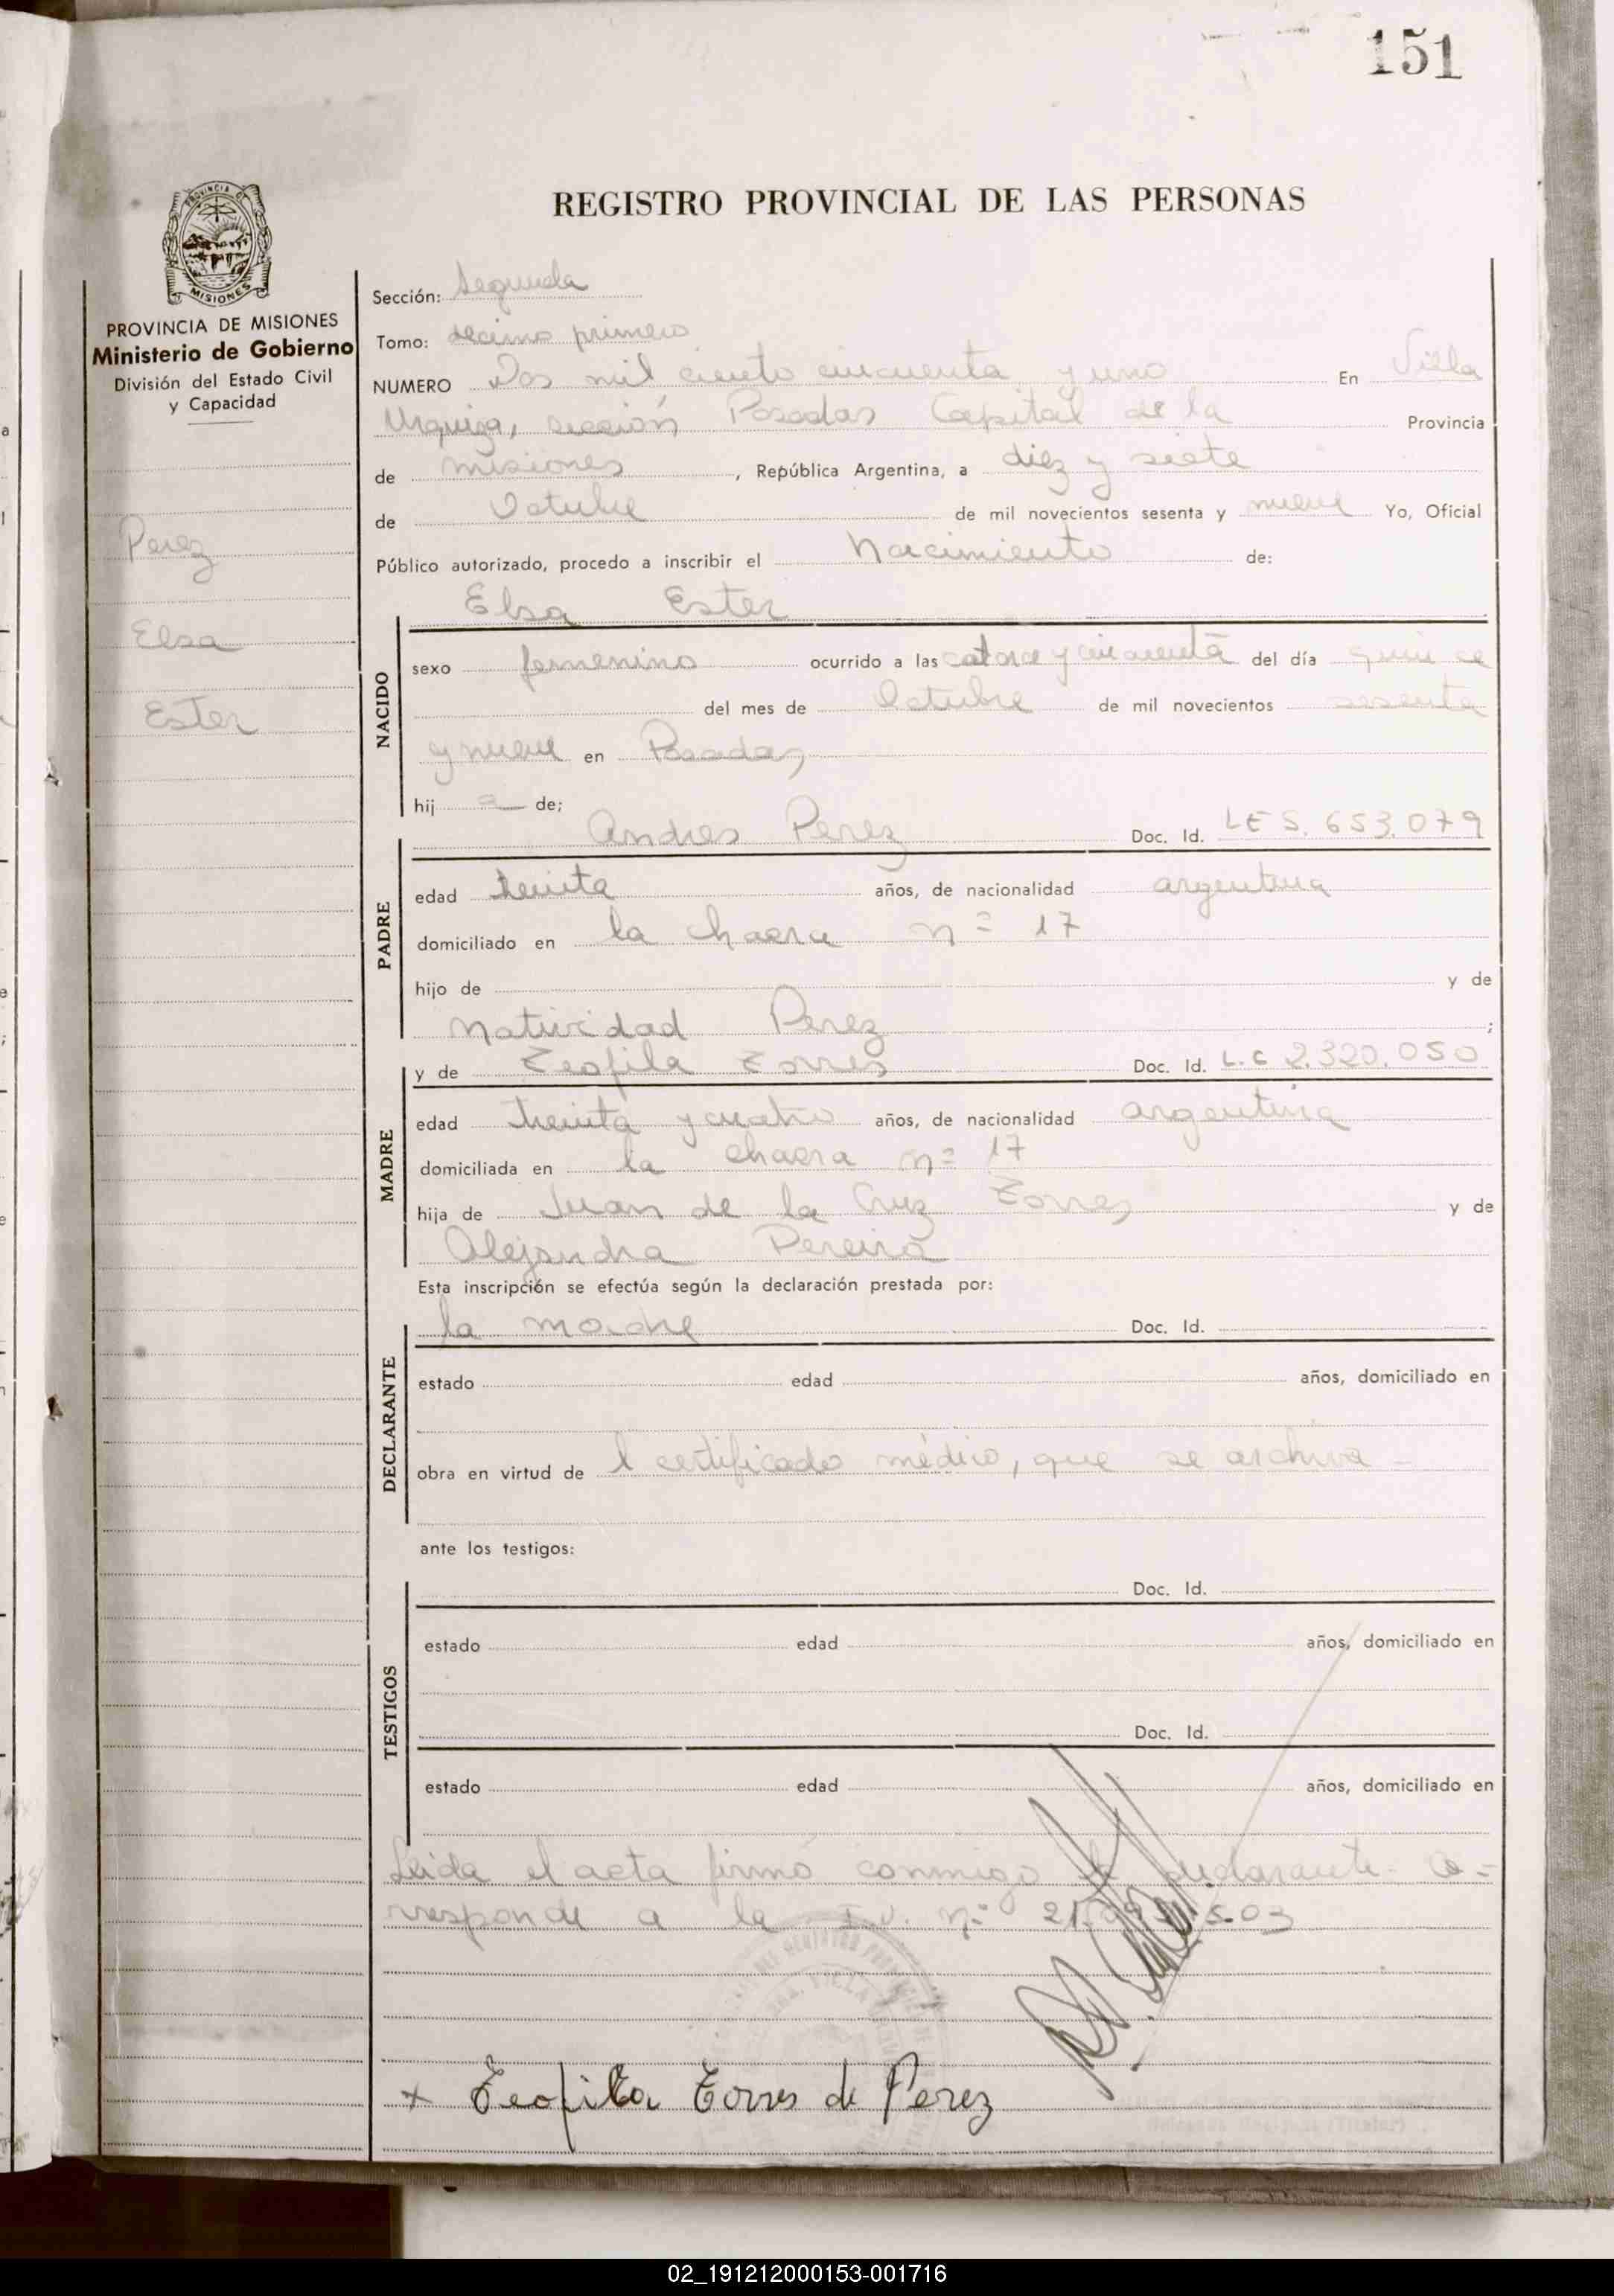 151
PROVINCIA DE
MISIONES
REGISTRO PROVINCIAL DE LAS PERSONAS
PROVINCIA DE MISIONES
Ministerio de Gobierno
División del Estado Civil
y Capacidad
Perez
Elsa
Ester
Sección: Segunda
Tomo: decimo primero
NUMERO Dos mil ciento cincuenta y uno En Villa
Urquiza, sección Posadas Capital de la Provincia
de misiones, República Argentina, a diez y siete
de Octubre de mil novecientos sesenta y nueve Yo, Oficial
Público autorizado, procedo a inscribir el Nacimiento de:
Elsa Ester
NACIDO
sexo femenino ocurrido a las catorce y cincuenta del día quince
del mes de Octubre de mil novecientos sesenta
y nueve en Posadas
hij a de;
Andres Perez Doc. Id. LE 5.653.079
PADRE
edad treinta años, de nacionalidad argentina
domiciliado en la chacra n= 17
hijo de y de
Natividad Perez ;
y de Teofila Torres Doc. Id. L.C 2.320.050
MADRE
edad treinta y cuatro años, de nacionalidad argentina
domiciliada en la chacra n= 17
hija de Juan de la Cruz Torres y de
Alejandra Pereira
Esta inscripción se efectúa según la declaración prestada por:
la madre Doc. Id.
DECLARANTE
estado edad años, domiciliado en
obra en virtud de l certificado médico, que se archiva -
ante los testigos:
Doc. Id.
TESTIGOS
estado edad años, domiciliado en
Doc. Id.
estado edad años, domiciliado en
Leida el acta firmó conmigo la declarante- Co=
rresponde a la I.D. n=
x Teofila Torres de Perez
02_191212000153-001716